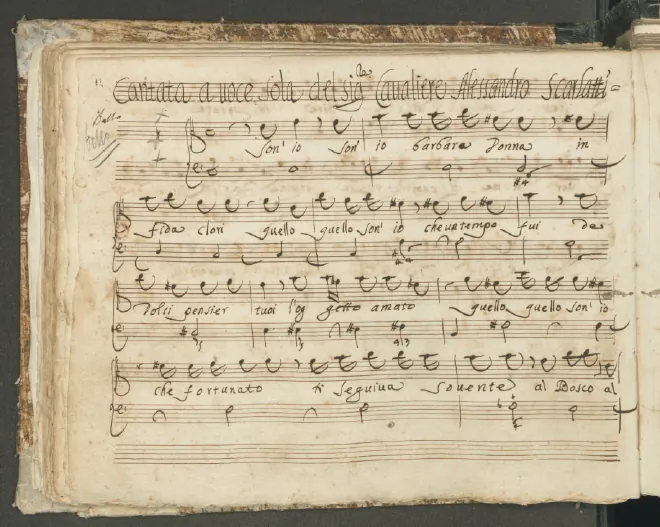 Cantata a voce sola del Sig.re Cavaliere Alessandro Scarlatti
Son' io son' io barbara Donna in
fida clori quello quello son' io che un tempo fui de
Dolci pensier tuoi l'og getto amato quello quello son' io
che fortunato ti seguiva sovente al Bosco al